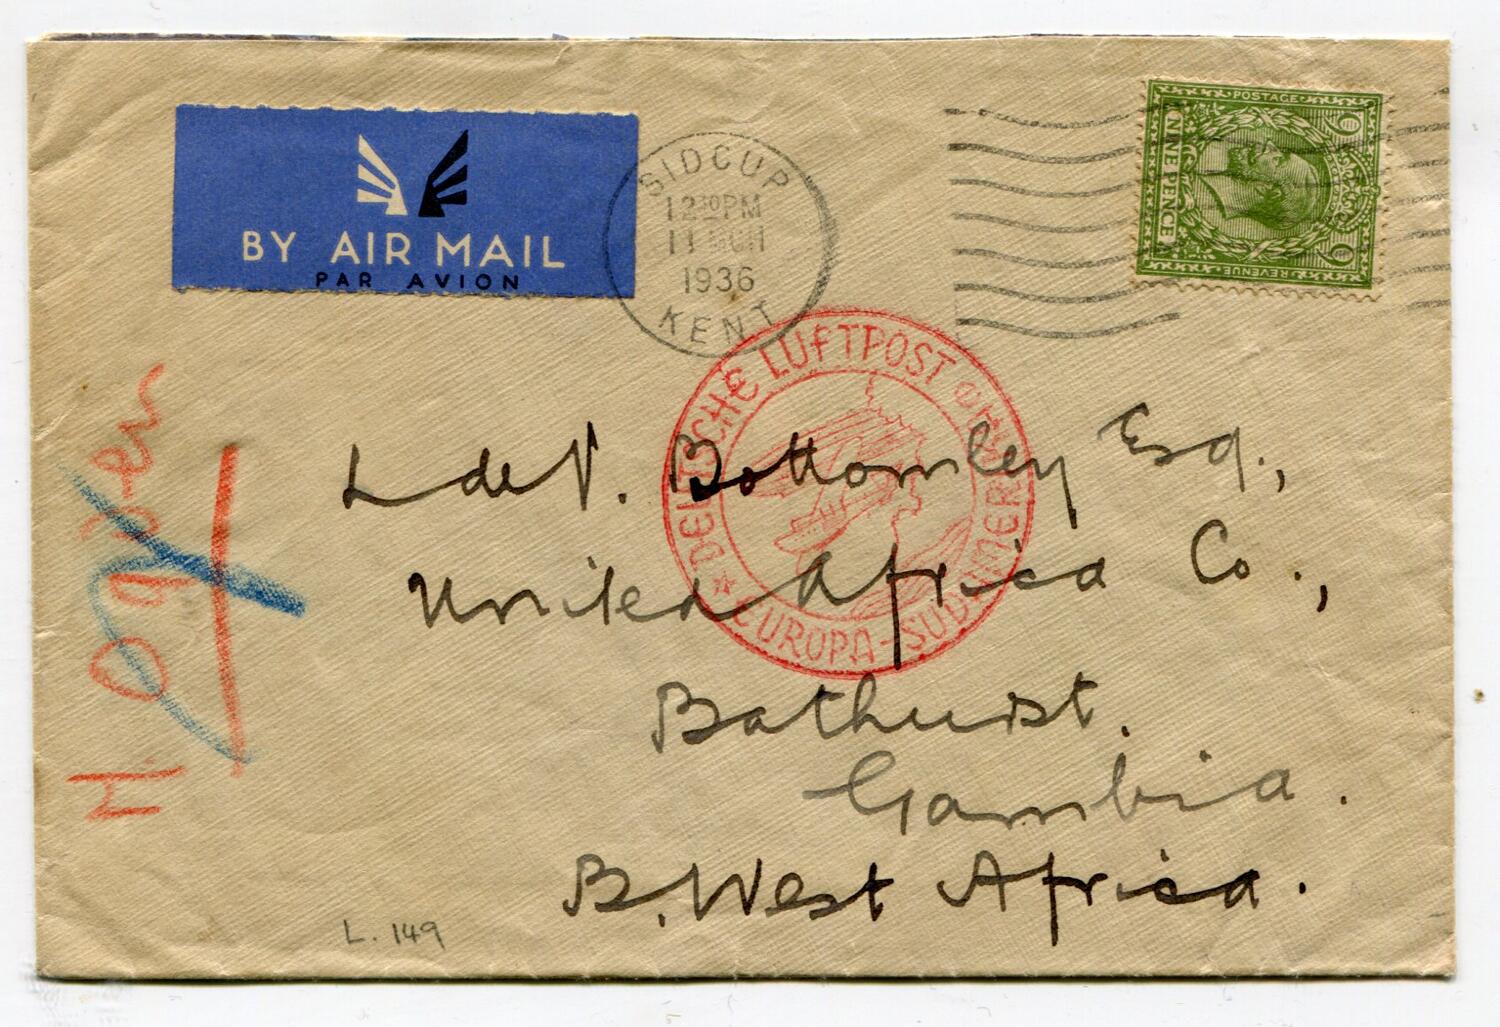 BY AIR MAIL
PAR AVION
SIDCUP
12 30 PM
11 MCH
1936
KENT
POSTAGE
NINE PENCE
9 9
REVENUE
DEUTSCHE LUFTPOST
EUROPA-SÜDAMERIKA
L de V. Bottomley Esq.,
United Africa Co.,
Bathurst.
Gambia.
B. West Africa.
L. 149